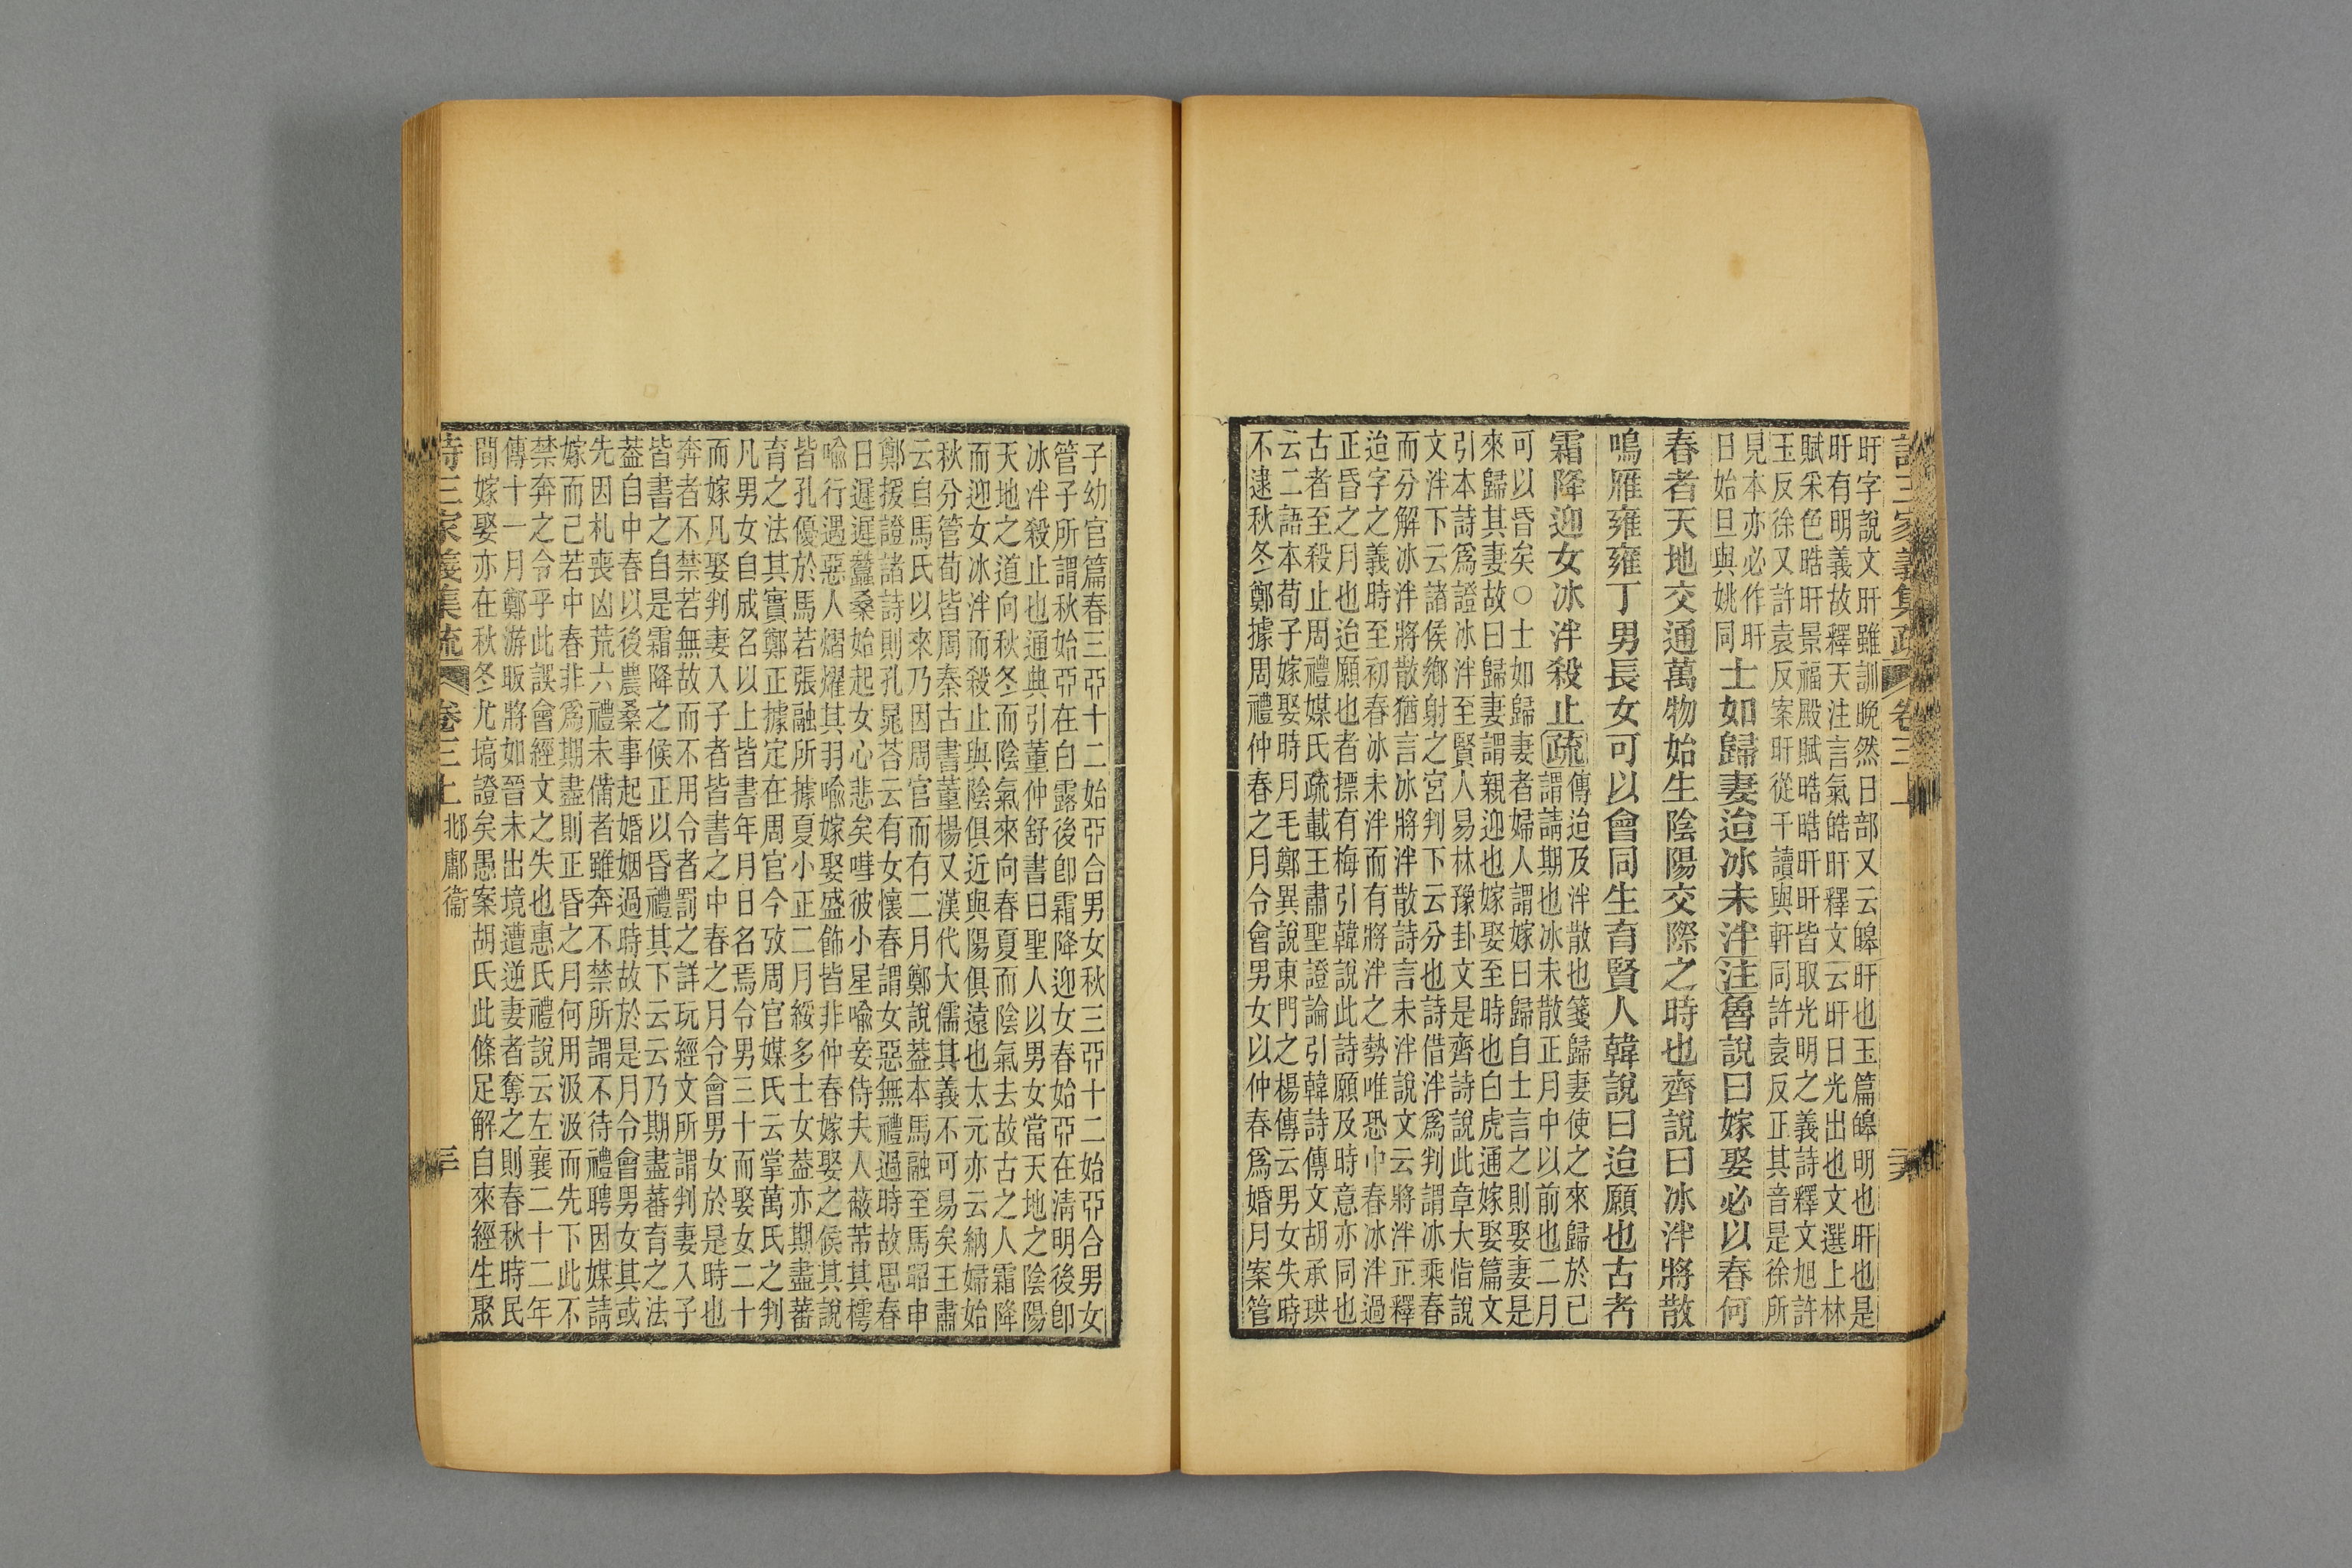 詩三家義集疏 卷三上
旰字說文旰雖訓晚然日部又云皞旰也玉篇皞明也旰也是
旰有明義故釋天注言氣皓旰釋文云旰日光出也文選上林
賦采色晧旰景福殿賦晧晧旰旰皆取光明之義詩釋文旭許
玉反徐又許袁反案旰從干讀與軒同許袁反正其音是徐所
見本亦必作旰
日始旦與姚同
士如歸妻迨冰未泮注魯說曰嫁娶必以春何
春者天地交通萬物始生陰陽交際之時也齊說曰冰泮將散
鳴雁雍雍丁男長女可以會同生育賢人韓說曰迨願也古者
霜降迎女冰泮殺止疏
傳迨及泮散也箋歸妻使之來歸於己
謂請期也冰未散正月中以前也二月
可以昏矣○士如歸妻者婦人謂嫁曰歸自士言之則娶妻是
來歸其妻故曰歸妻謂親迎也嫁娶至時也白虎通嫁娶篇文
引本詩爲證冰泮至賢人易林豫卦文是齊詩說此章大恉說
文泮下云諸侯鄉射之宮判下云分也詩借泮爲判謂冰乘春
而分解冰泮將散猶言冰將泮散詩言未泮說文云將泮正釋
迨字之義時至初春冰未泮而有將泮之勢唯恐中春冰泮過
正昏之月也迨願也者摽有梅引韓說此詩願及時意亦同也
古者至殺止周禮媒氏疏載王肅聖證論引韓詩傳文胡承珙
云二語本荀子嫁娶時月毛鄭異說東門之楊傳云男女失時
不逮秋冬鄭據周禮仲春之月令會男女以仲春爲婚月案管
子幼官篇春三亞十二始亞合男女秋三亞十二始亞合男女
管子所謂秋始亞在白露後卽霜降迎女春始亞在淸明後卽
冰泮殺止也通典引董仲舒書曰聖人以男女當天地之陰陽
天地之道向秋冬而陰氣來向春夏而陰氣去故古之人霜降
而迎女冰泮而殺止與陰俱近與陽俱遠也太元亦云納婦始
秋分管荀皆周秦古書董楊又漢代大儒其義不可易矣王肅
云自馬氏以來乃因周官而有二月鄭說葢本馬融至馬昭申
鄭援證諸詩則孔晁荅云有女懷春謂女惡無禮過時故思春
日遲遲蠶桑始起女心悲矣嘒彼小星喻妾侍夫人蔽芾其樗
喻行遇惡人熠燿其羽喻嫁娶盛飾皆非仲春嫁娶之候其說
皆孔優於馬若張融所據夏小正二月綏多士女葢亦期盡蕃
育之法其實鄭正據定在周官今攷周官媒氏云掌萬氏之判
凡男女自成名以上皆書年月日名焉令男三十而娶女二十
而嫁凡娶判妻入子者皆書之中春之月令會男女於是時也
奔者不禁若無故而不用令者罰之詳玩經文所謂判妻入子
皆書之自是霜降之候正以昏禮其下云云乃期盡蕃育之法
葢自中春以後農桑事起婚姻過時故於是月令會男女其或
先因札喪凶荒六禮未備者雖奔不禁所謂不待禮聘因媒請
嫁而已若中春非爲期盡則正昏之月何用汲汲而先下此不
禁奔之令乎此誤會經文之失也惠氏禮說云左襄二十二年
傳十一月鄭游眅將如晉未出境遭逆妻者奪之則春秋時民
間嫁娶亦在秋冬尤塙證矣愚案胡氏此條足解自來經生聚
詩三家義集疏 卷三上 邶鄘衞